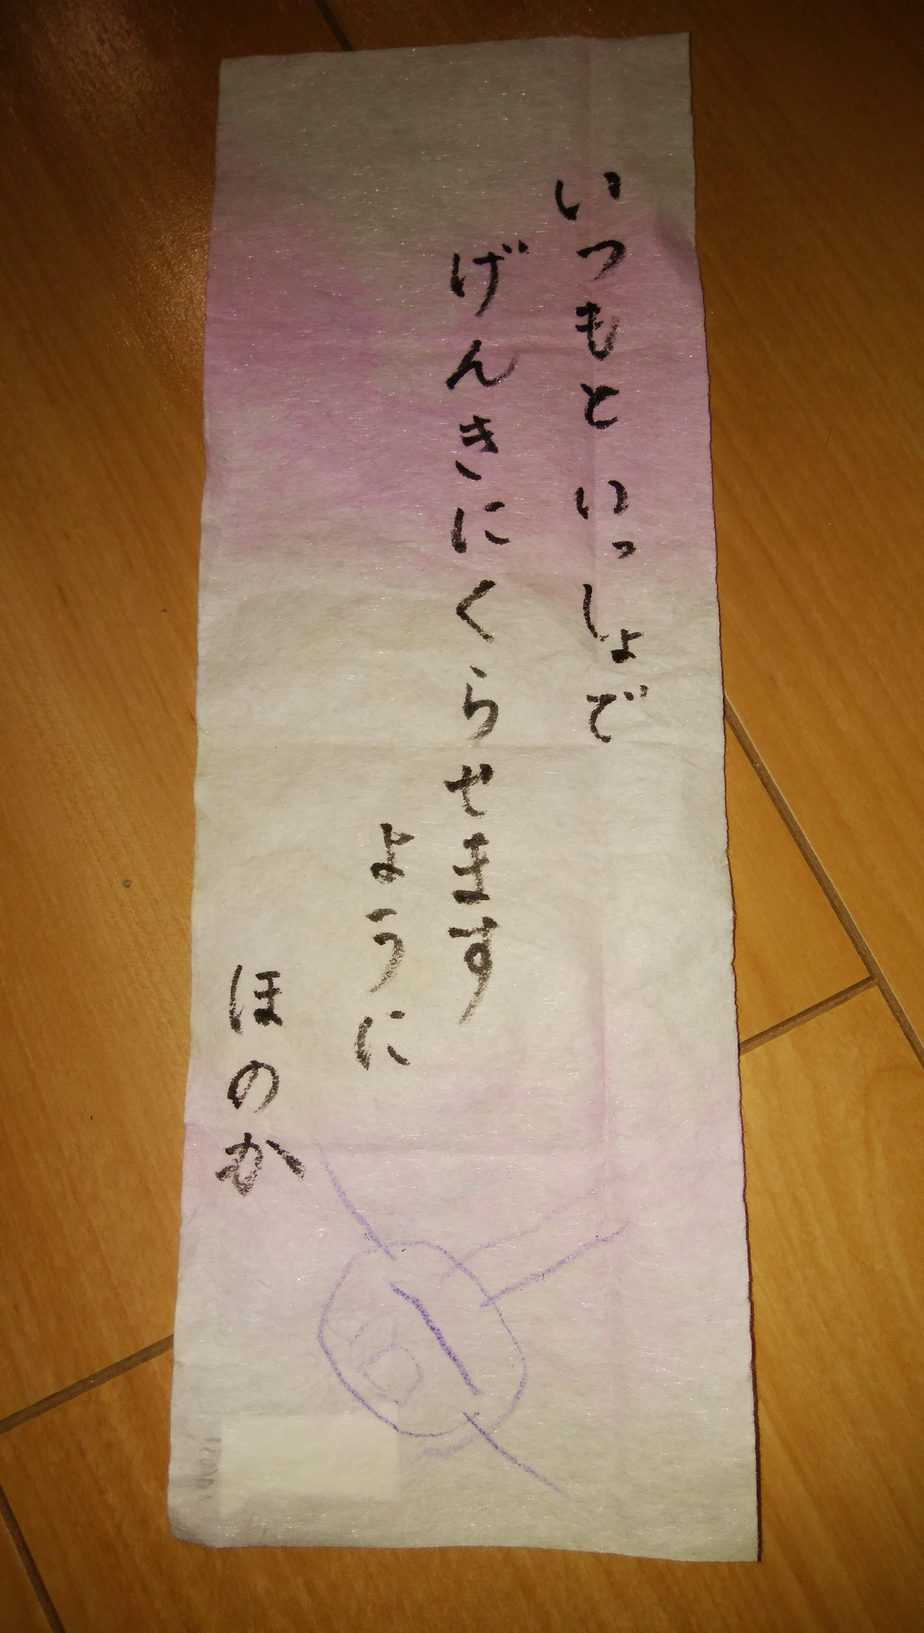 いつもと いっしょで
げんきにくらせます
ように
ほのか